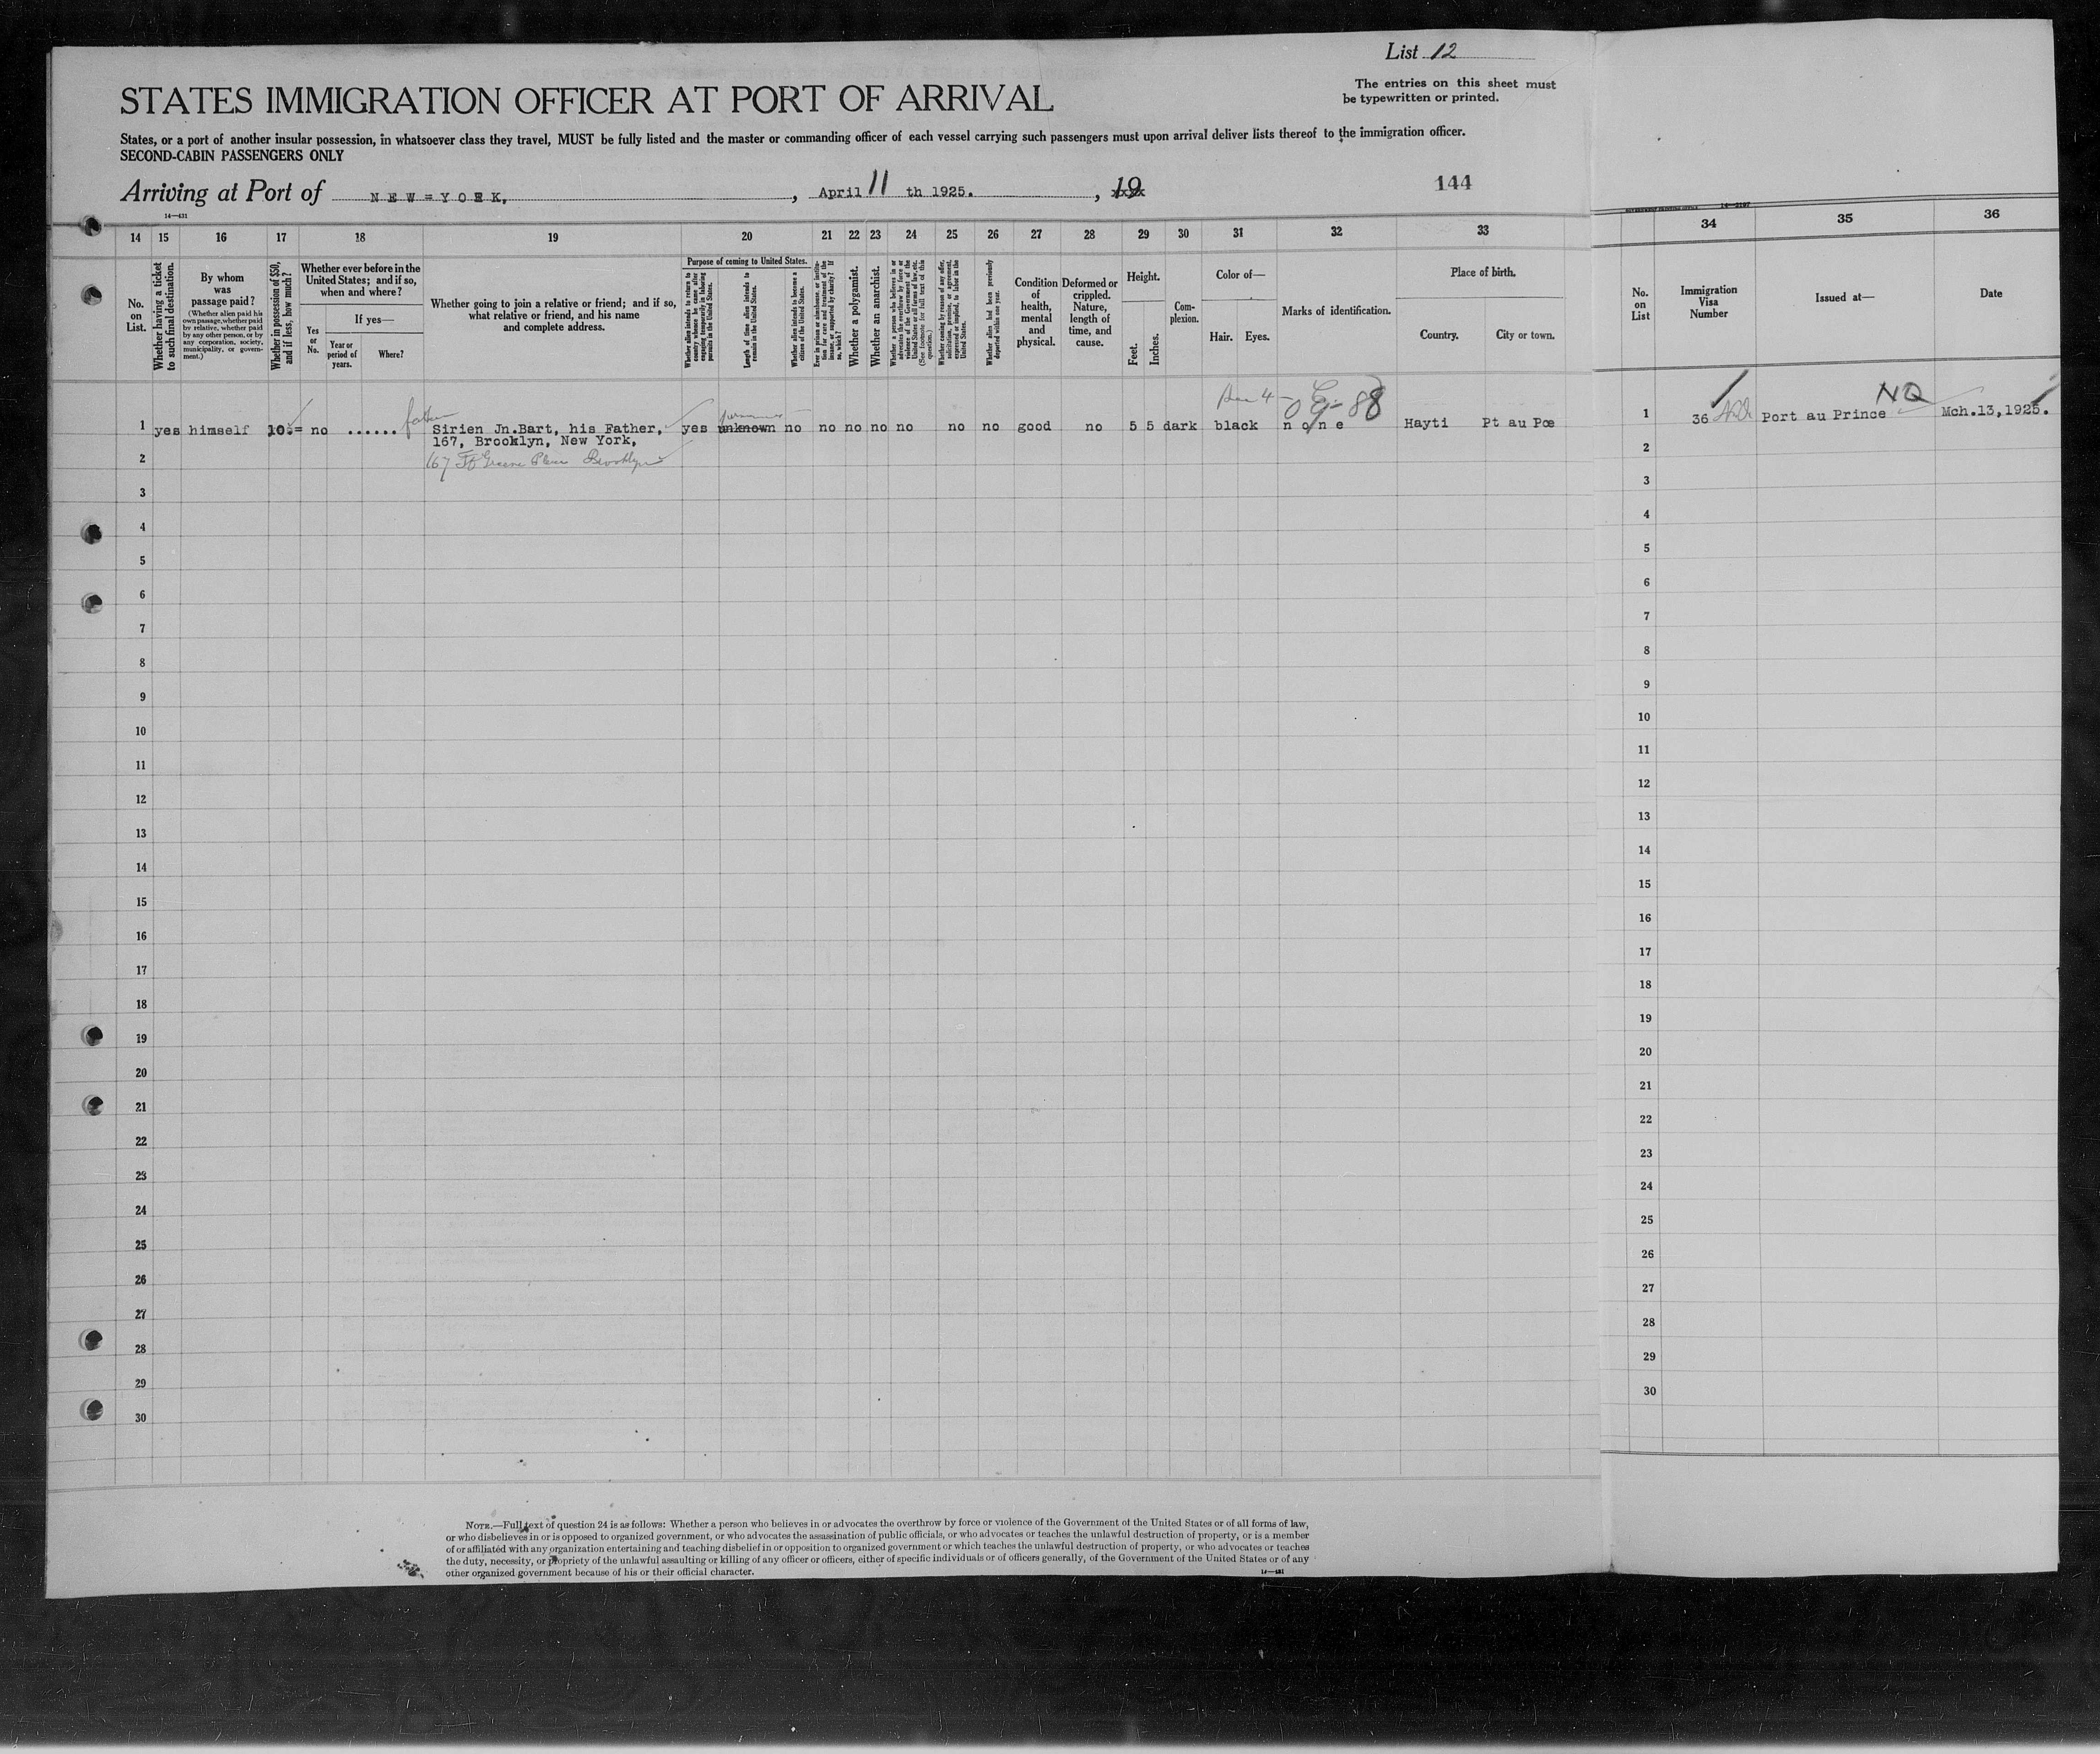 List 12
The entries on this sheet must
be typewritten or printed.
STATES IMMIGRATION OFFICER AT PORT OF ARRIVAL
States, or a port of another insular possession, in whatsoever class they travel, MUST be fully listed and the master or commanding officer of each vessel carrying such passengers must upon arrival deliver lists thereof to the immigration officer.
SECOND-CABIN PASSENGERS ONLY
Arriving at Port of NEW=YORK, , April 11 th 1925. , 19
144
14—431
14 15 16 17 18 19 20 21 22 23 24 25 26 27 28 29 30 31 32 33 34 35 36
No. on List.
Whether having a ticket to such final destination.
By whom was passage paid?
(Whether alien paid his own passage, whether paid by relative, whether paid by any other person, or by any corporation, society, municipality, or government.)
Whether in possession of $50, and if less, how much?
Whether ever before in the United States; and if so, when and where?
Yes or No.
If yes—
Year or period of years.
Where?
Whether going to join a relative or friend; and if so, what relative or friend, and his name and complete address.
Purpose of coming to United States.
Whether alien intends to return to country whence he came after engaging temporarily in laboring pursuits in the United States.
Length of time alien intends to remain in the United States.
Whether alien intends to become a citizen of the United States.
Ever in prison or almshouse, or institution for care and treatment of the insane, or supported by charity? If so, which?
Whether a polygamist.
Whether an anarchist.
Whether a person who believes in or advocates the overthrow by force or violence of the Government of the United States or all forms of law, etc. (See footnote for full text of this question.)
Whether coming by reason of any offer, solicitation, promise, or agreement, expressed or implied, to labor in the United States.
Whether alien had been previously deported within one year.
Condition of health, mental and physical.
Deformed or crippled. Nature, length of time, and cause.
Height.
Feet.
Inches.
Complexion.
Color of—
Hair. Eyes.
Marks of identification.
Place of birth.
Country. City or town.
No. on List
Immigration Visa Number
Issued at—
Date
father
4 88 NQ
1 yes himself 10.= no ...... Sirien Jn.Bart, his Father, yes unknown no no no no no no no good no 5 5 dark black none Hayti Pt au Pce 1 36 Port au Prince Mch.13,1925.
167, Brooklyn, New York,
2 167 Ft Greene Place Brooklyn 2
3 3
4 4
5 5
6 6
7 7
8 8
9 9
10 10
11 11
12 12
13 13
14 14
15 15
16 16
17 17
18 18
19 19
20 20
21 21
22 22
23 23
24 24
25 25
26 26
27 27
28 28
29 29
30 30
NOTE.—Full text of question 24 is as follows: Whether a person who believes in or advocates the overthrow by force or violence of the Government of the United States or of all forms of law,
or who disbelieves in or is opposed to organized government, or who advocates the assassination of public officials, or who advocates or teaches the unlawful destruction of property, or is a member
of or affiliated with any organization entertaining and teaching disbelief in or opposition to organized government or which teaches the unlawful destruction of property, or who advocates or teaches
the duty, necessity, or propriety of the unlawful assaulting or killing of any officer or officers, either of specific individuals or of officers generally, of the Government of the United States or of any
other organized government because of his or their official character.
14—431